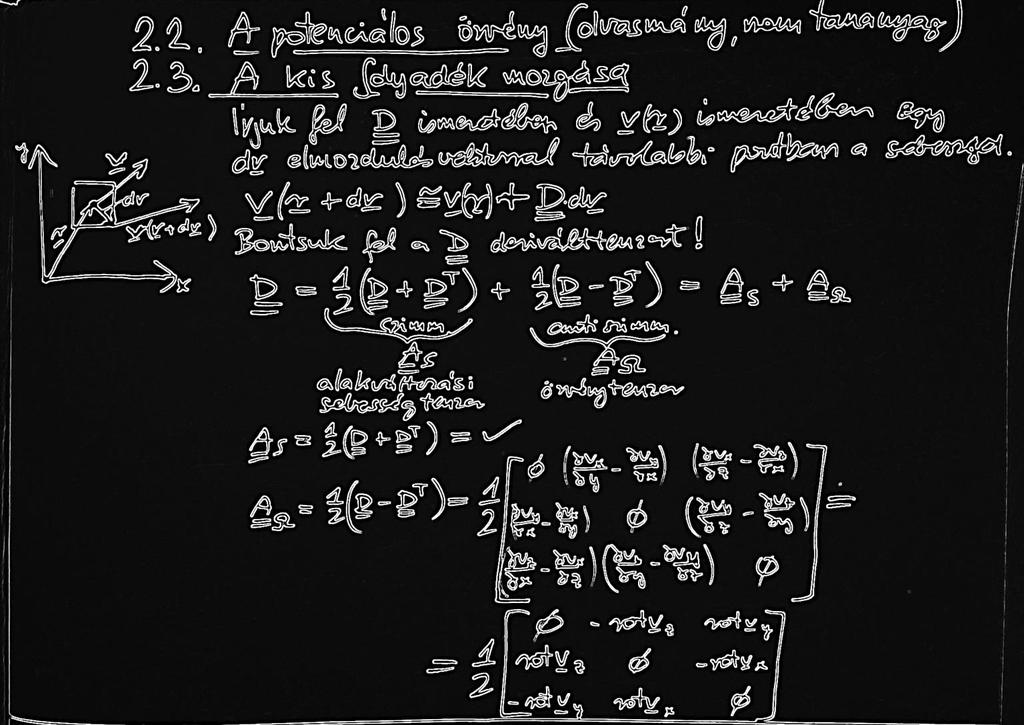 2.2. A potenciálos örvény (olvasmány, nem tananyag)
2.3. A kis folyadék mozgása
Írjuk fel D ismeretében és v(r) ismeretében egy
dr elmozdulás vektorral távolabbi pontban a sebességet.
y v dr r v(r+dr) x
v(r + dr) ≅ v(r) + D·dr
Bontsuk fel a D deriválttenzort!
D = 1/2(D + Dᵀ) + 1/2(D - Dᵀ) = A_S + A_Ω
szimm. antiszimm.
A_S A_Ω
alakváltozási örvénytenzor
sebesség tenzor
A_S = 1/2(D + Dᵀ) = ✓
A_Ω = 1/2(D - Dᵀ) = 1/2 [ ∅ (∂v_x/∂y - ∂v_y/∂x) (∂v_x/∂z - ∂v_z/∂x) ] =
(∂v_y/∂x - ∂v_x/∂y) ∅ (∂v_y/∂z - ∂v_z/∂y)
(∂v_z/∂x - ∂v_x/∂z) (∂v_z/∂y - ∂v_y/∂z) ∅
= 1/2 [ ∅ -rot v_z rot v_y
rot v_z ∅ -rot v_x
-rot v_y rot v_x ∅ ]